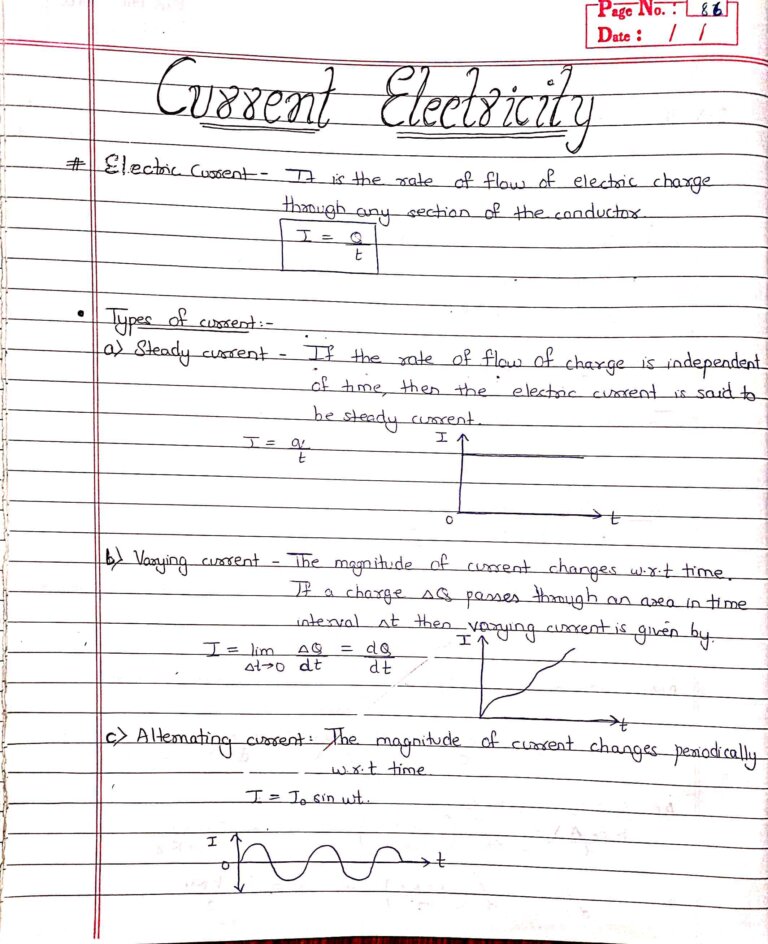 Page No.: 86
Date: / /
Current Electricity
# Electric Current - It is the rate of flow of electric charge
through any section of the conductor.
I = Q/t
• Types of current:-
a) Steady current - If the rate of flow of charge is independent
of time, then the electric current is said to
be steady current.
I = q/t
I
0
t
b) Varying current - The magnitude of current changes w.r.t time.
If a charge ΔQ passes through an area in time
interval Δt then varying current is given by.
I = lim Δt→0 ΔQ/dt = dQ/dt
I
t
c) Alternating current: The magnitude of current changes periodically
w.r.t time
I = I₀ sin wt.
I
0
t